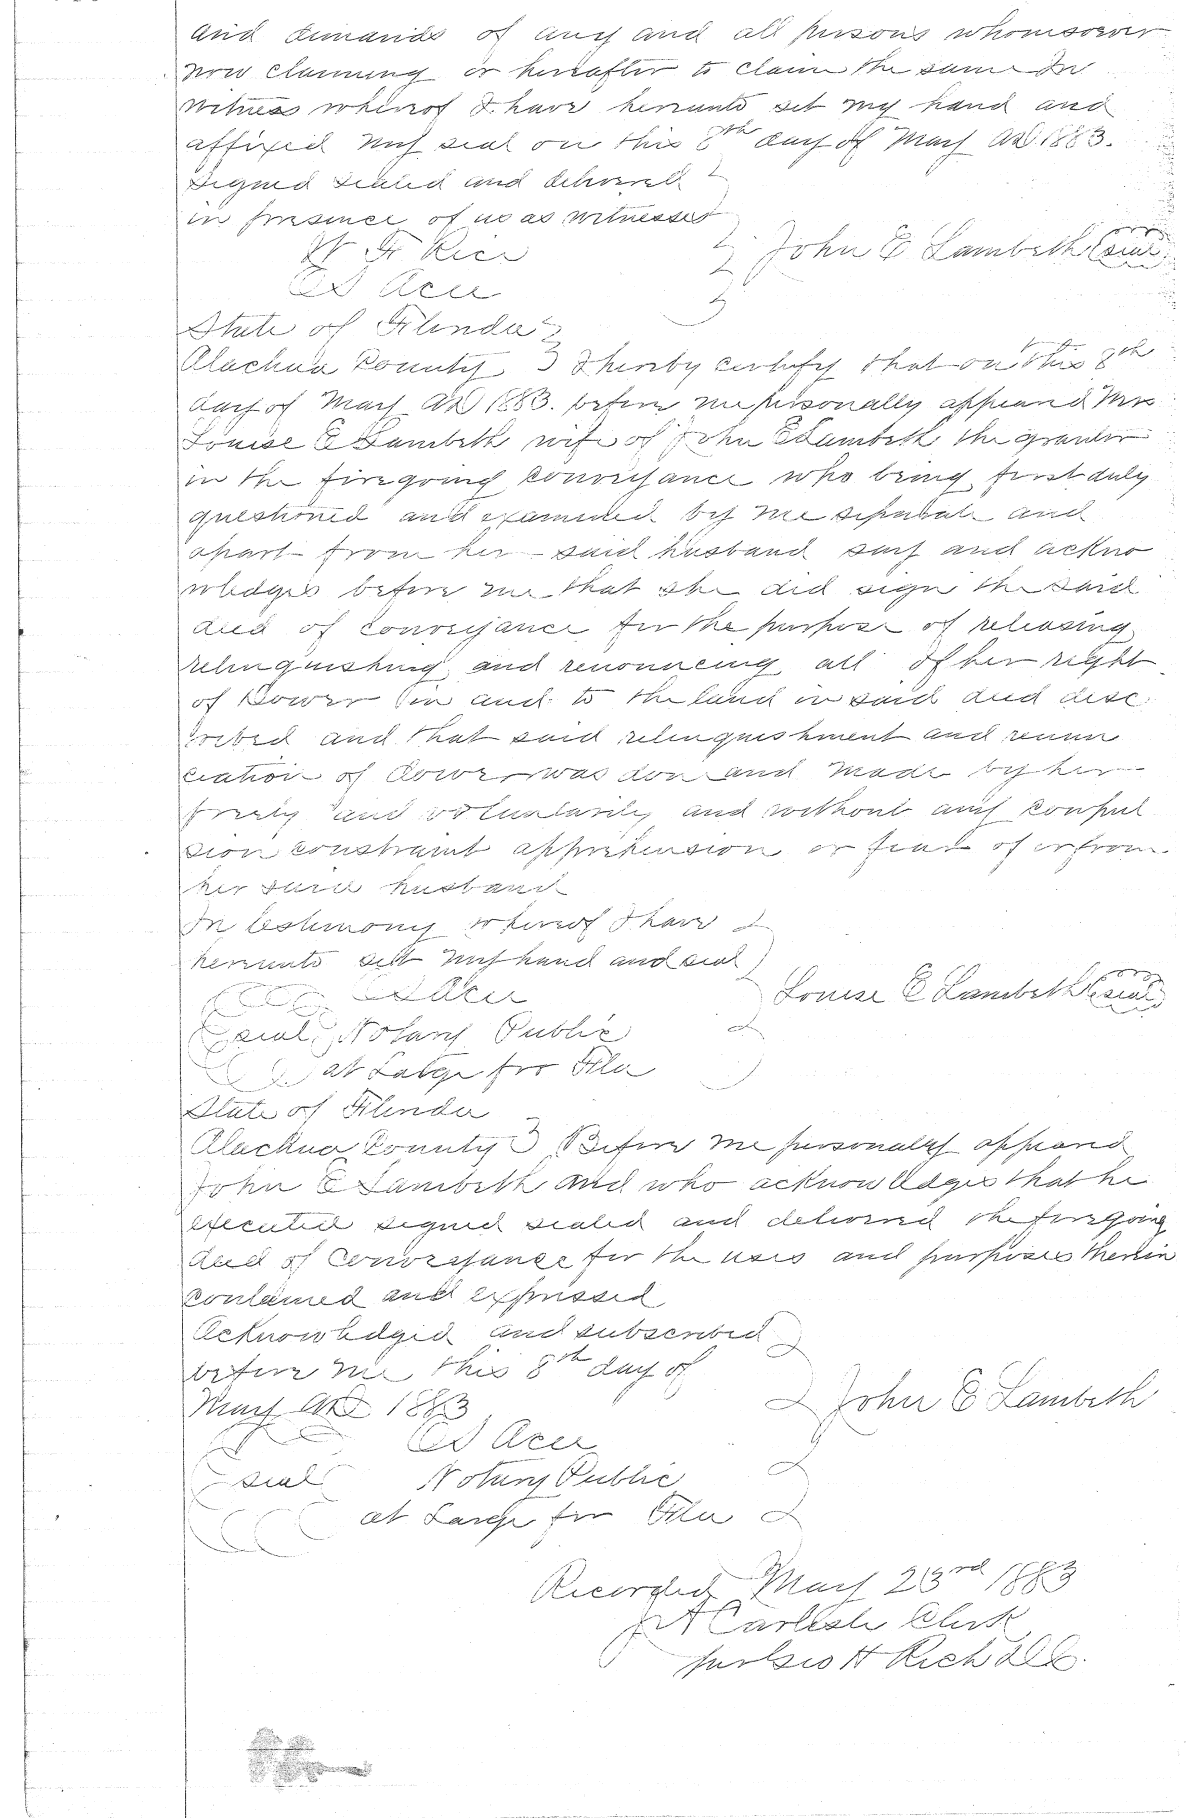 and demands of any and all persons whomsoever
now claiming or hereafter to claim the same In
witness whereof I have hereunto set my hand and
affixed my seal on this 8th day of May AD 1883.
Signed sealed and delivered
in presence of us as witnesses
W F Rice
John E Lambeth (seal)
State of Florida
Alachua County I hereby certify that on this 8th
day of May AD 1883. before me personally appeared Mrs
Louise E Lambeth wife of John E Lambeth the grantor
in the foregoing conveyance who being first duly
questioned and examined by me separate and
apart from her said husband say and ackno
wledges before me that she did sign the said
deed of conveyance for the purpose of releasing
relinquishing and renouncing all of her right
of Dower in and to the land in said deed desc
ribed and that said relinquishment and renun
ciation of dower was don and made by her
freely and voluntarily and without any compul
sion constraint apprehension or fear of or from
her said husband
In testimony whereof I have
hereunto set my hand and seal
Louise E Lambeth (seal)
seal Notary Public
at Large for Fla
State of Florida
Alachua County Before me personally appeared
John E Lambeth and who acknowledges that he
executed signed sealed and delivered the foregoing
deed of conveyance for the uses and purposes therein
contained and expressed
Acknowledged and subscribed
before me this 8th day of
May AD 1883
John E Lambeth
seal Notary Public
at Large for Fla
Recorded May 23rd 1883
J A Carlisle Clerk
per Geo H Rich D.C.